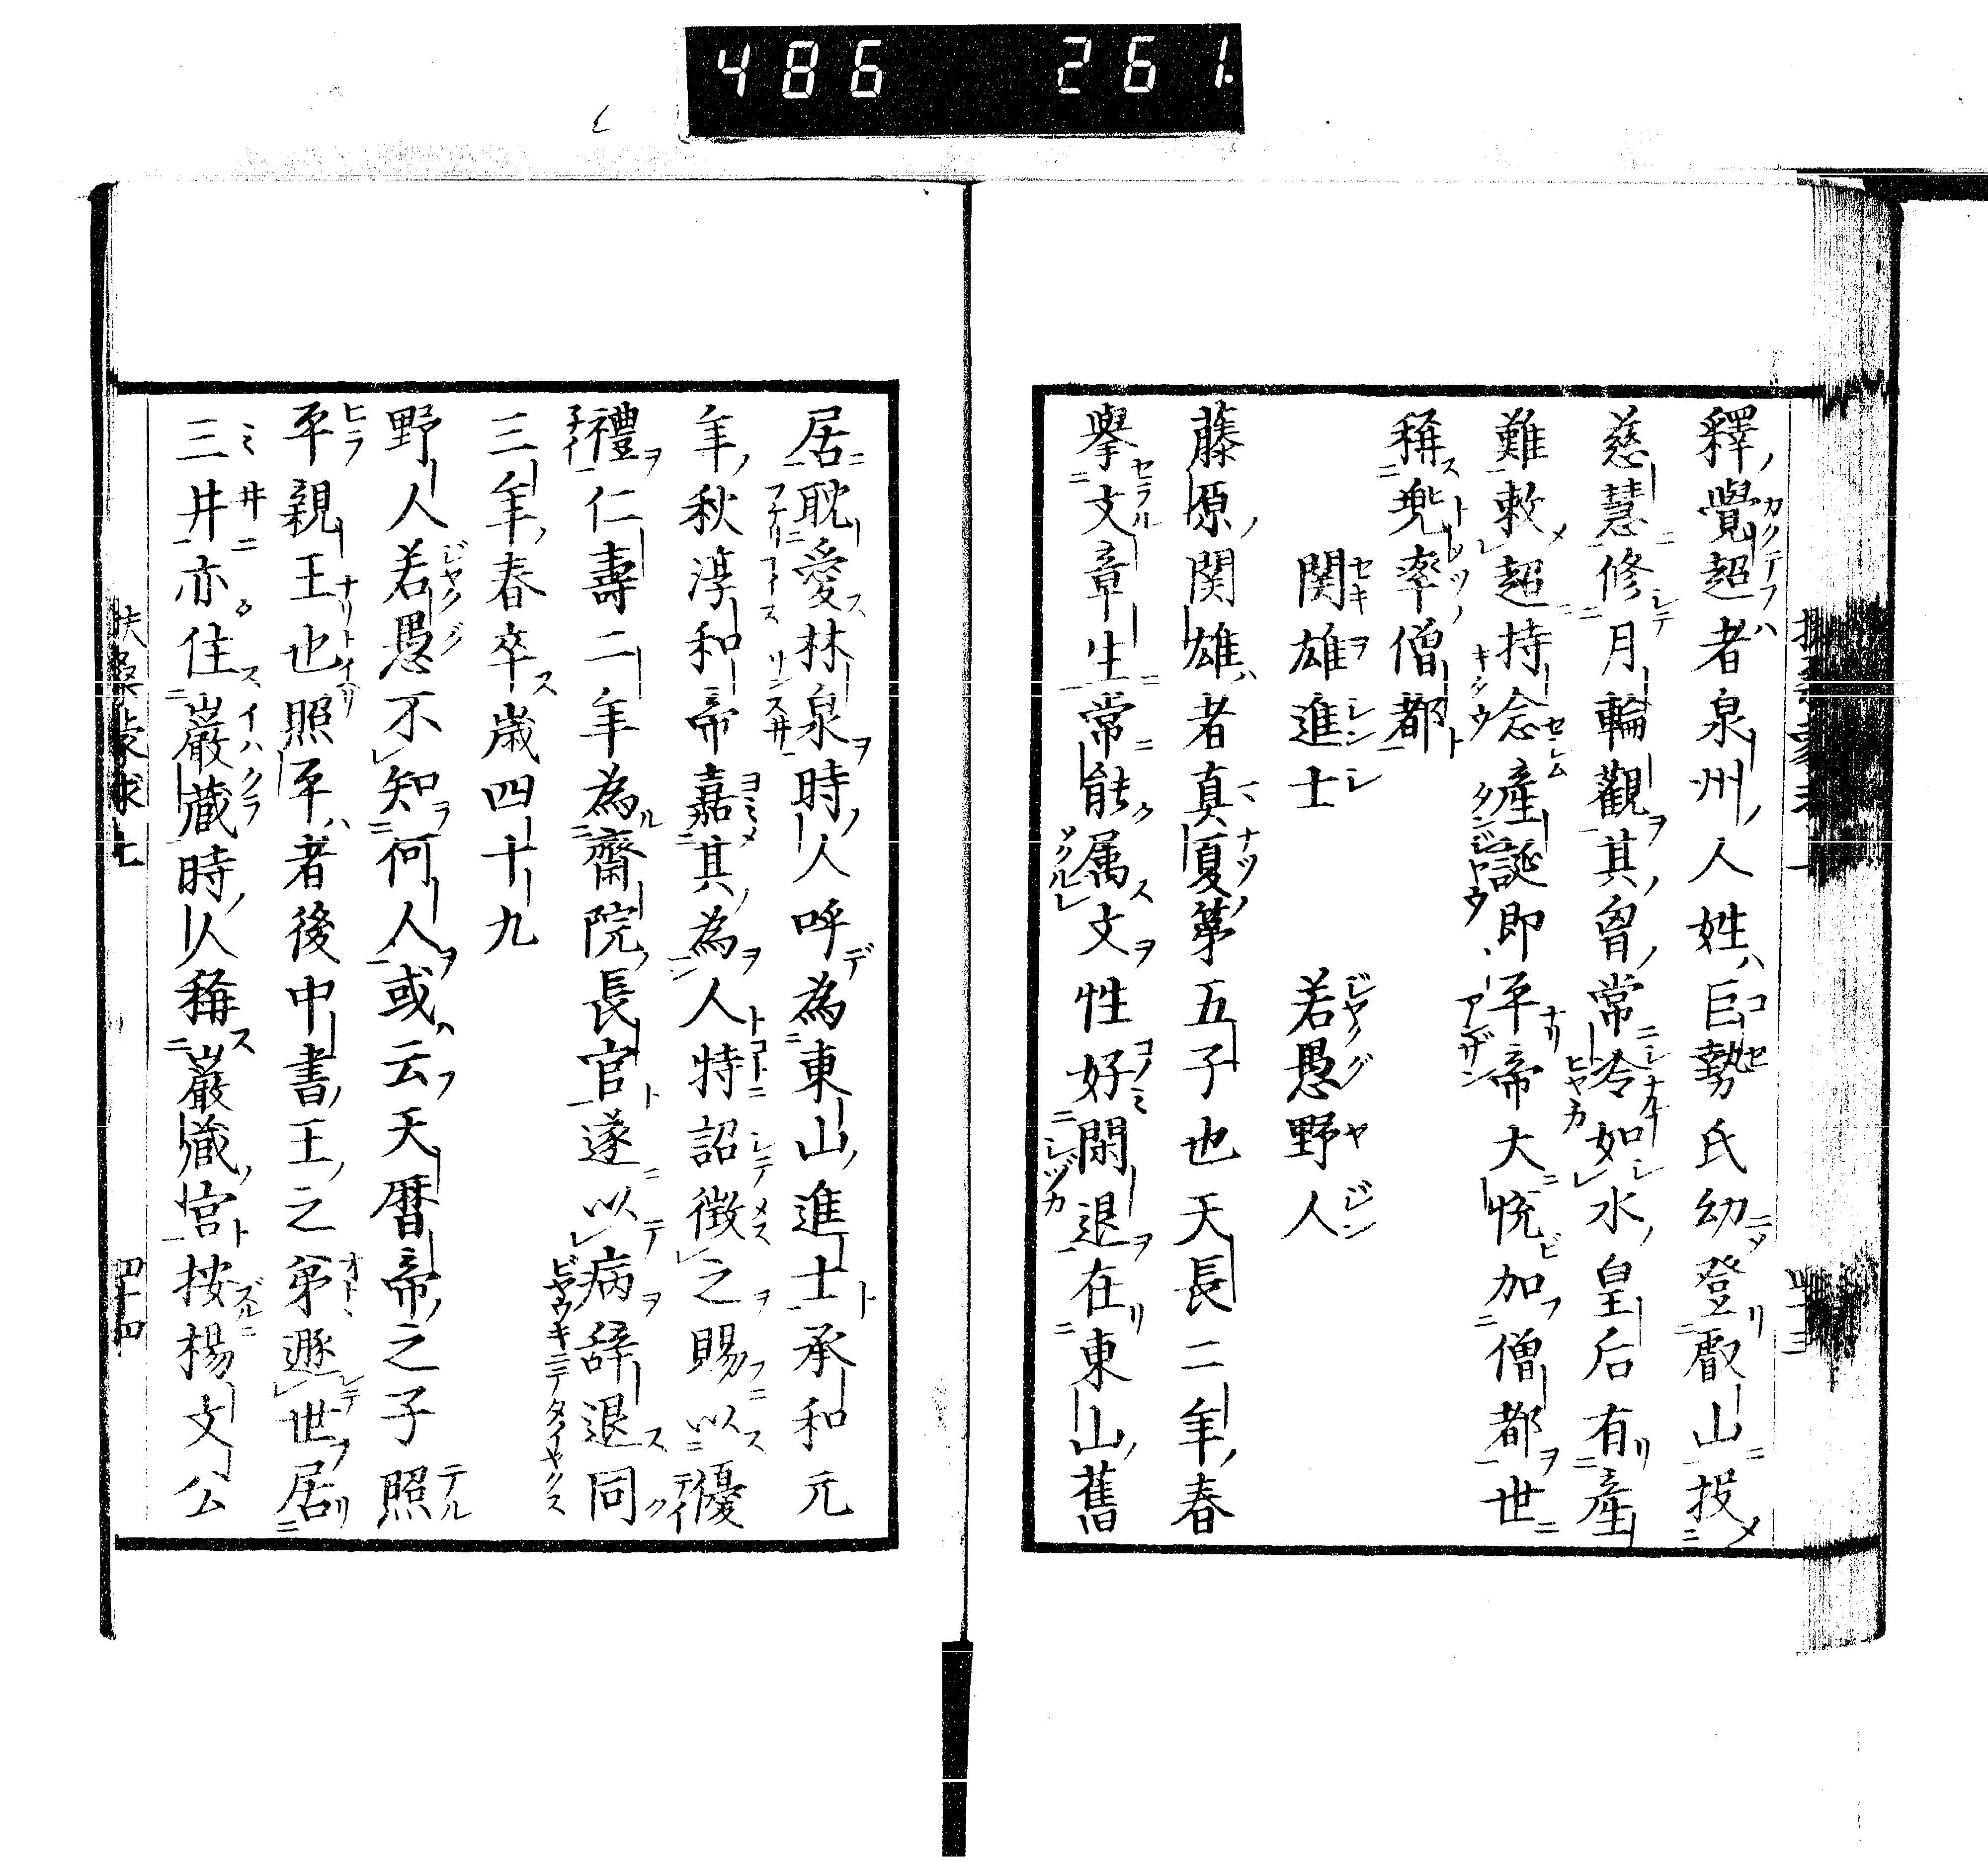 486 261.
釋覺超者泉州人姓巨勢氏幼登叡山投
慈慧修月輪觀其胷常冷如水皇后有產
難敕超持念產誕即平帝大悅加僧都世
稱兜率僧都
関雄進士 若愚野人
藤原関雄者真夏第五子也天長二年春
擧文章生常能属文性好閑退在東山舊
居耽愛林泉時人呼為東山進士承和元
年秋淳和帝嘉其為人特詔徴之賜以優
禮仁壽二年為齋院長官遂以病辞退同
三年春卒歳四十九
野人若愚不知何人或云天暦帝之子照
平親王也照平者後中書王之弟遯世居
三井亦住巖藏時人稱巖藏宮按楊文公
扶桑蒙求上 四十四